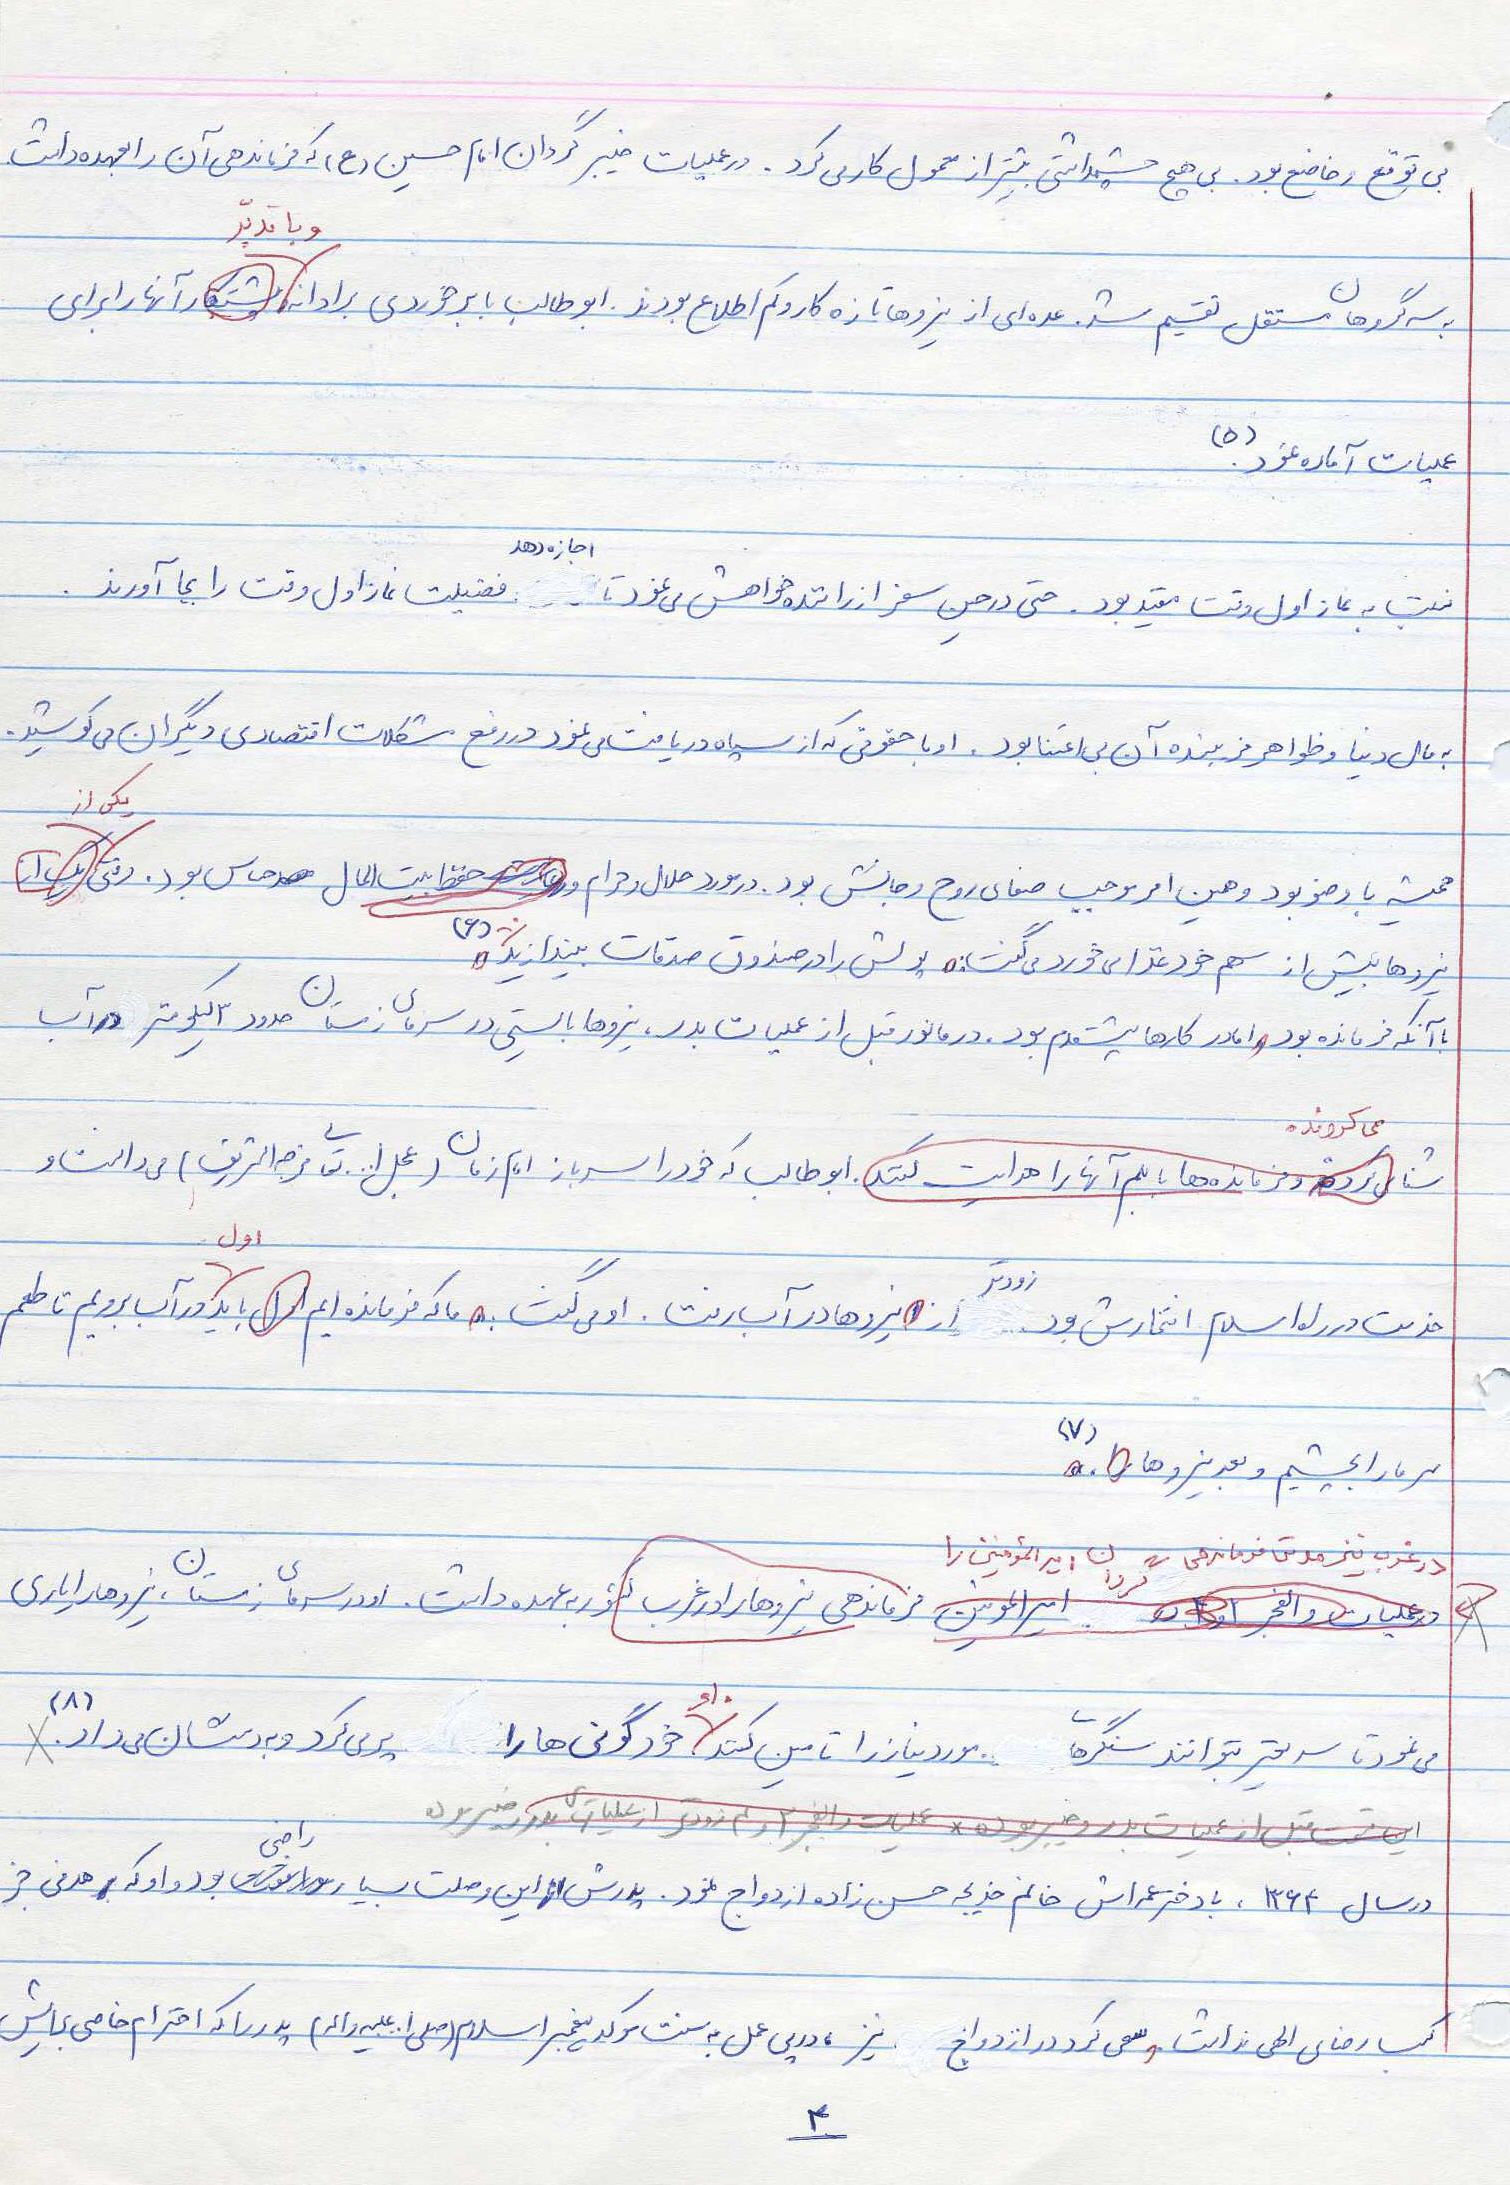 بی توقع و خاضع بود. بی هیچ چشمداشتی بیشتر از معمول کار می کرد. در عملیات خیبر گردان امام حسین (ع) که فرماندهی آن را بعهده داشت
و با تدبّر
به سه گروهان مستقل تقسیم شد. عده ای از نیروها تازه کار و کم اطلاع بودند. ابوطالب با برخوردی برادرانه پشتکار آنها را برای
(۵)
عملیات آماده نمود.
اجازه دهد
نسبت به نماز اول وقت مقید بود. حتی در حین سفر از راننده خواهش می نمود تا فضیلت نماز اول وقت را بجا آورند.
به مال دنیا و ظواهر فریبنده آن بی اعتنا بود. او با حقوقی که از سپاه دریافت می نمود در رفع مشکلات اقتصادی دیگران می کوشید.
یکی از
همیشه با وضو بود و همین امر موجب صفای روح و جانش بود. در مورد حلال و حرام و حفظ بیت المال حساس بود. وقتی یکی از
(۶)
نیروها بیش از سهم خود غذا می خورد می گفت: پولش را در صندوق صدقات بیندازید
با آنکه فرمانده بود، اما در کارها پیشقدم بود. در مانور قبل از عملیات بدر، نیروها بایستی در سرمای زمستان حدود ۳ کیلومتر در آب
می کردند
شنا کرده و فرمانده ها با بلم آنها را هدایت کنند. ابوطالب که خود را سرباز امام زمان (عجل ا... تعالی فرجه الشریف) می دانست و
اول
زودتر
خدمت در راه اسلام افتخارش بود از نیروها در آب رفت. او می گفت: ما که فرمانده ایم اول باید در آب برویم تا طعم
(۷)
سرما را بچشیم و بعد نیروها.
در غرب نیز مدتی فرماندهی گردان امیرالمؤمنین را
در عملیات والفجر امیرالمؤمنین فرماندهی نیروها را در غرب کشور به عهده داشت. او در سرمای زمستان، نیروها را یاری
او
(۸)
می نمود تا سریعتر بتوانند سنگرهای مورد نیاز را تامین کنند، خود گونی ها را پر می کرد و به دستشان می داد.
این قسمت قبل از عملیات بدر و خیبر بوده × عملیات والفجر ۲ زودتر از عملیات بدر و خیبر بوده
راضی
در سال ۱۳۶۴، با دختر عمه اش خانم خدیجه حسن زاده ازدواج نمود. پدرش از این وصلت بسیار بود و او که هدفی جز
کسب رضای الهی نداشت، سعی کرد در ازدواج نیز، در پی عمل به سنت موکد پیغمبر اسلام (صلی ا... علیه و اله) پدر را که احترام خاصی برایش
۴